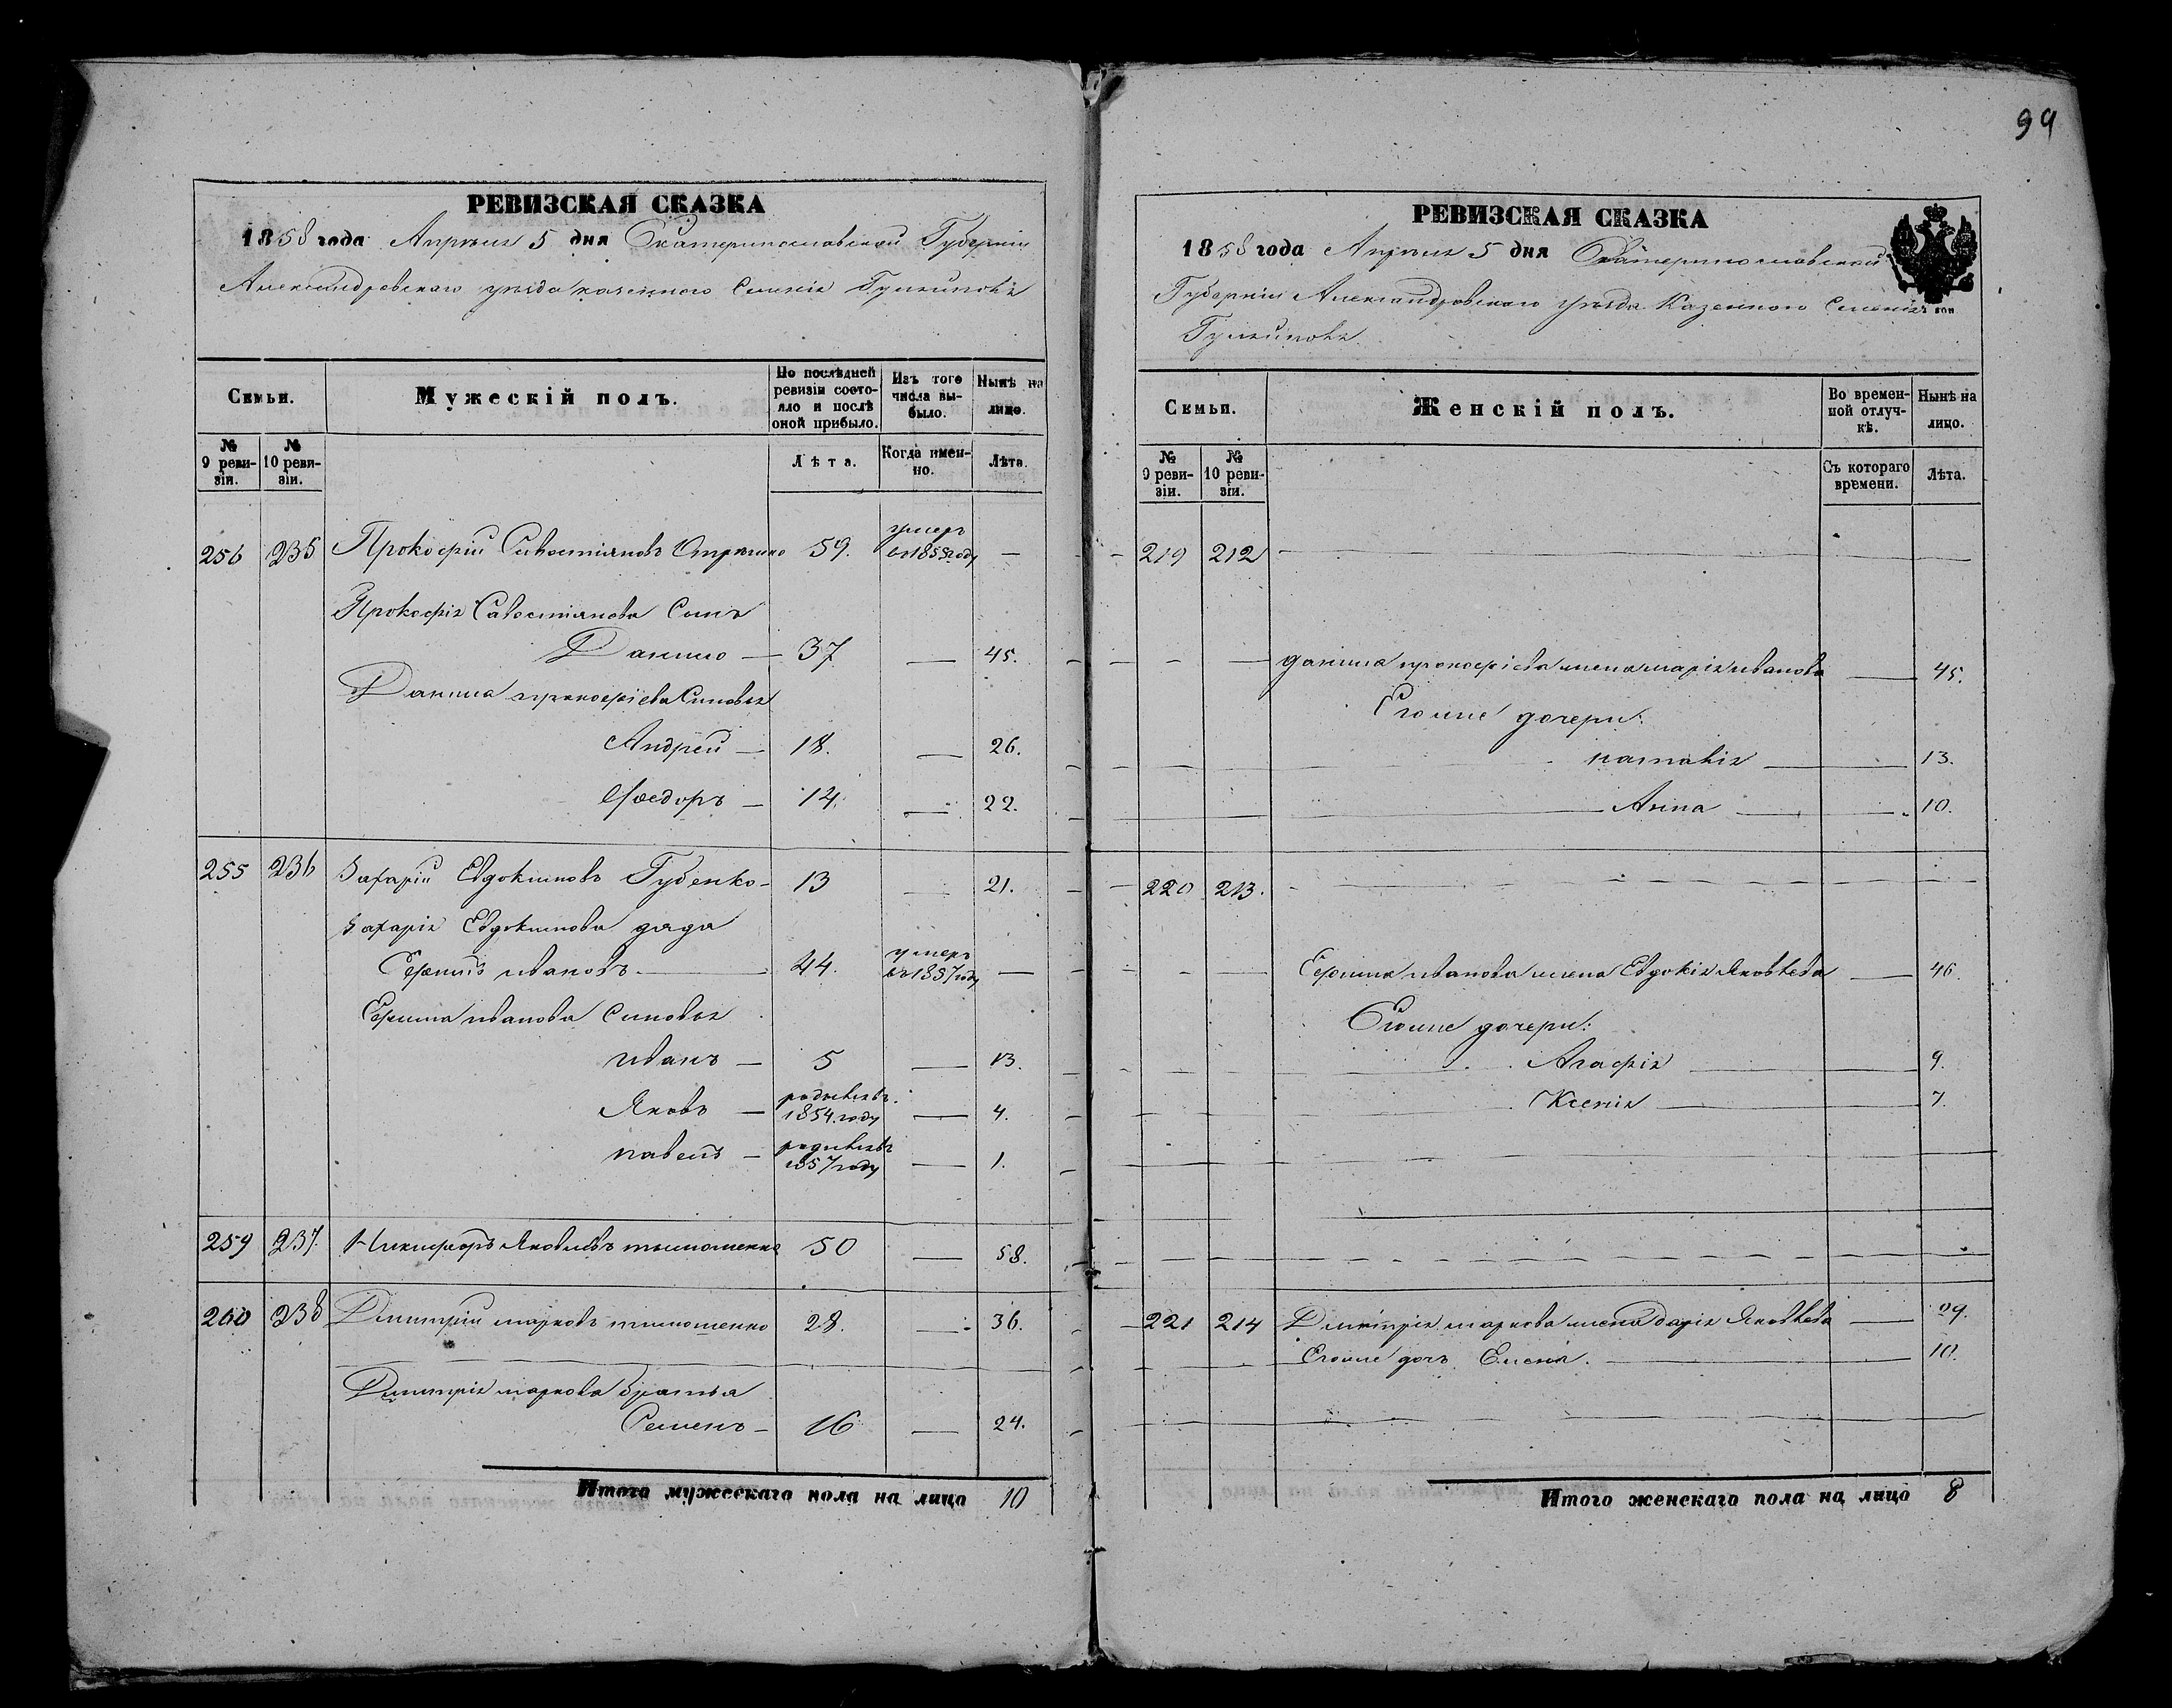 99
РЕВИЗСКАЯ СКАЗКА
1858 года Апрѣля 5 дня Екатеринославской Губерніи
Александровского уѣзда казенного Селенія Гуляиполя
Семьи.
Мужескій полъ.
По послѣдней ревизіи состояло и послѣ оной прибыло.
Изъ того числа выбыло.
Нынѣ на лицо.
№ 9 ревизіи.
№ 10 ревизіи.
Лѣта.
Когда именно.
Лѣта.
256 235 Прокофій Савостіяновъ 59. умеръ въ 1855 году —
Прокофія Савостіянова Сынъ
Данило — 37 — 45.
Данила прокофіева Сыновья
Андрей — 18. — 26.
Федоръ — 14. — 22.
255 236 Захарій Евдокимовъ Губенко 13 — 21.
Захарія Евдокимова дядя
Ефимъ ивановъ — 44. умеръ въ 1857 году —
Ефима иванова Сыновья
иванъ — 5 — 13.
Яковъ — родився въ 1854 году — 4.
павелъ — родився въ 1857 году — 1.
259 237. Никифоръ Яковлевъ тимошенко 50 — 58.
260 238 Дмитрій марковъ тимошенко 28. — 36.
Дмитрія маркова братья
Семенъ — 16 — 24.
Итого мужескаго пола на лицо 10
РЕВИЗСКАЯ СКАЗКА
1858 года Апрѣля 5 дня Екатеринославской
Губерніи Александровского уѣзда Казенного Селенія
Гуляиполя
Семьи.
Женскій полъ.
Во временной отлучкѣ.
Нынѣ на лицо.
№ 9 ревизіи.
№ 10 ревизіи.
Съ котораго времени.
Лѣта.
219 212
данила прокофіева жена марія иванова — 45.
Егоже дочери:
наталія — 13.
Анна — 10.
220 213.
Ефима иванова жена Евдокія Яковлева — 46.
Егоже дочери:
Агафія — 9.
Ксенія — 7.
221 214 Дмитрія маркова жена Дарія Яковлева —
Егоже дочь Елена. — 10.
Итого женскаго пола на лицо 8